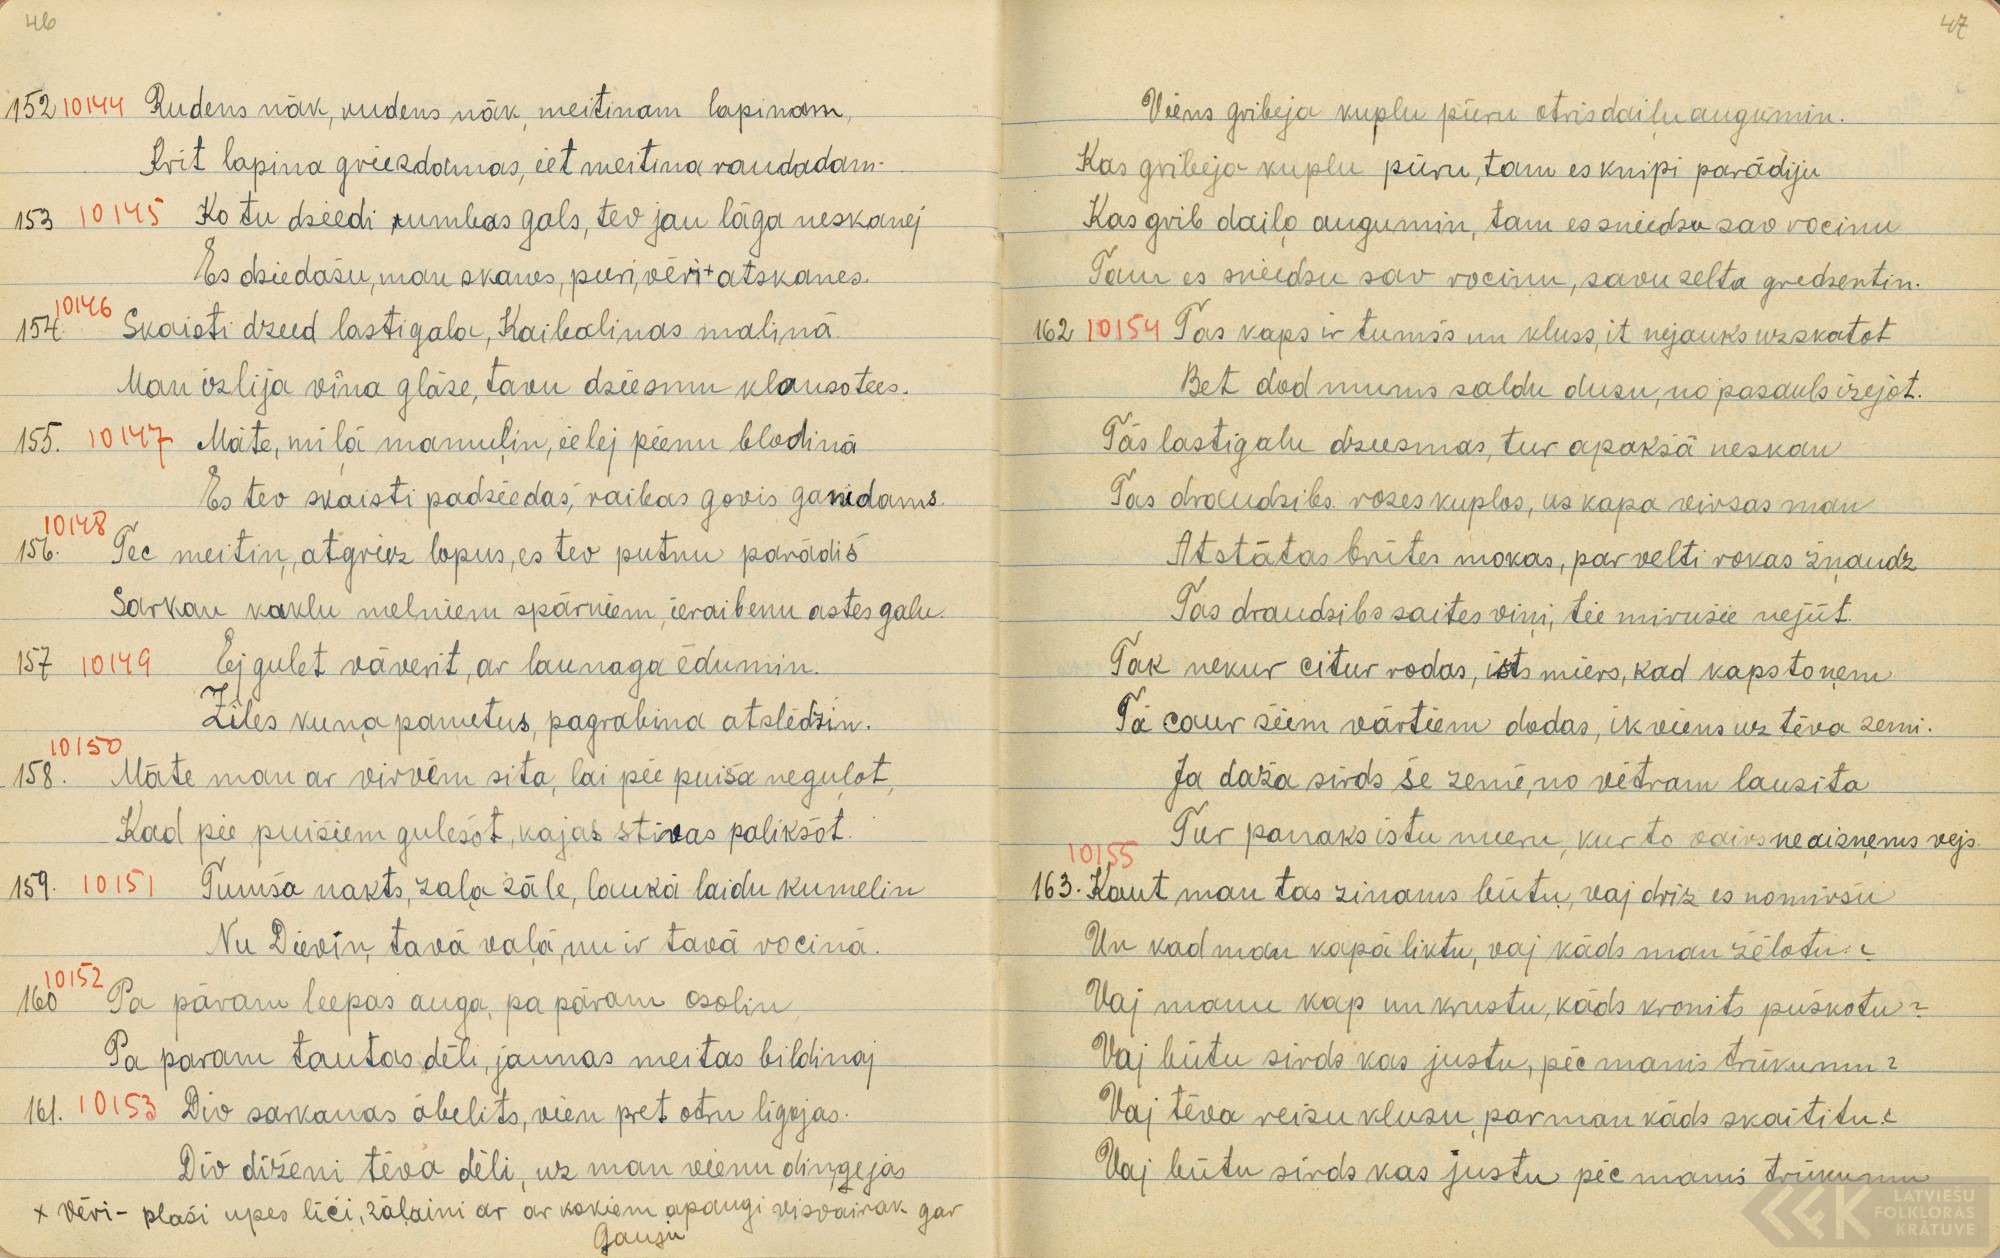 46
152 10144 Rudens nāk, rudens nāk, meitinam lapinam,
Krit lapina griezdamas, iet meitina raudadam.
153 10145 Ko tu dziedi rumbas gals, tev jau lāga neskanej
Es dziedašu, man skanes, puri, vēri+ atskanes.
154. 10146 Skaisti dzied lastigala, Kaibalinas malinā
Man izlija vīna glāze, tavu dziesmu klausotees.
155. 10147 Māte, miļā mamuļin, ielej pienu blodinā
Es tev skaisti padziedaš, raibas govis ganidams.
156. 10148 Tec meitiņ, atgriez lopus, es tev putnu parādiš
Sarkan kaklu melniem spārniem, ieraibenu astes galu.
157 10149 Ej gulet vāverit, ar launaga ēdumin.
Zīles kuņa pametus, pagrabina atslēdzin.
158. 10150 Māte man ar virvēm sita, lai pie puiša neguļot,
Kad pie puišiem gulešot, kajas stivas palikšot.
159. 10151 Tumša nakts, zaļa zāle, laukā laidu kumelin
Nu Dieviņ tavā vaļā, nu ir tavā rocinā.
160 10152 Pa pāram leepas auga, pa pāram osolin,
Pa param tautas dēli, jaunas meitas bildinaj
161. 10153 Div sarkanas ābelits, vien pret otru ligojas.
Div diženi tēva dēli, uz man vienu dingejās
x Vēri - plaši upes līči, zāļaini ar ar kokiem apaugi visvairāk gar
Gauju
47
Viens gribeja kuplu pūru otris daiļu augumin.
Kas gribeja kuplu pūru, tam es knipi parādiju
Kas grib dailo augumin, tam es sniedzu sav rocinu
Tam es sniedzu sav rocinu, savu zelta gredzentin.
162 10154 Tas kaps ir tumšs un kluss, it nejauks uzskatot
Bet dod mums saldu dusu, no pasauls izejot.
Tās lastigalu dzeesmas, tur apakšā neskan
Tas draudzibs rozes kuplos, us kapa virsas man
Atstātas brūtes mokas, par velti rokas žņaudz
Tās draudzibs saites viņi, tie mirušie nejūt.
Tak nekur citur rodas, ists miers, kad kaps to ņem
Tā caur šiem vārtiem dodas, ik viens uz tēva zemi.
Ja daža sirds še zemē, no vētram lauzita
Tur panaks istu mieru, kur to vairs neaizņems vejs.
163. 10155 Kaut man tas zinams būtu, vaj driz es nomiršu
Un kad man kapā liktu, vaj kāds man žēlotu?
Vaj manu kap un krustu, kāds kronits puškotu?
Vaj būtu sirds kas justu, pēc manis trūkumu?
Vaj tēva reizu klusu, par man kāds skaititu?
Vaj būtu sirds kas justu pēc manis trūkumu
LATVIEŠU
FOLKLORAS
KRĀTUVE